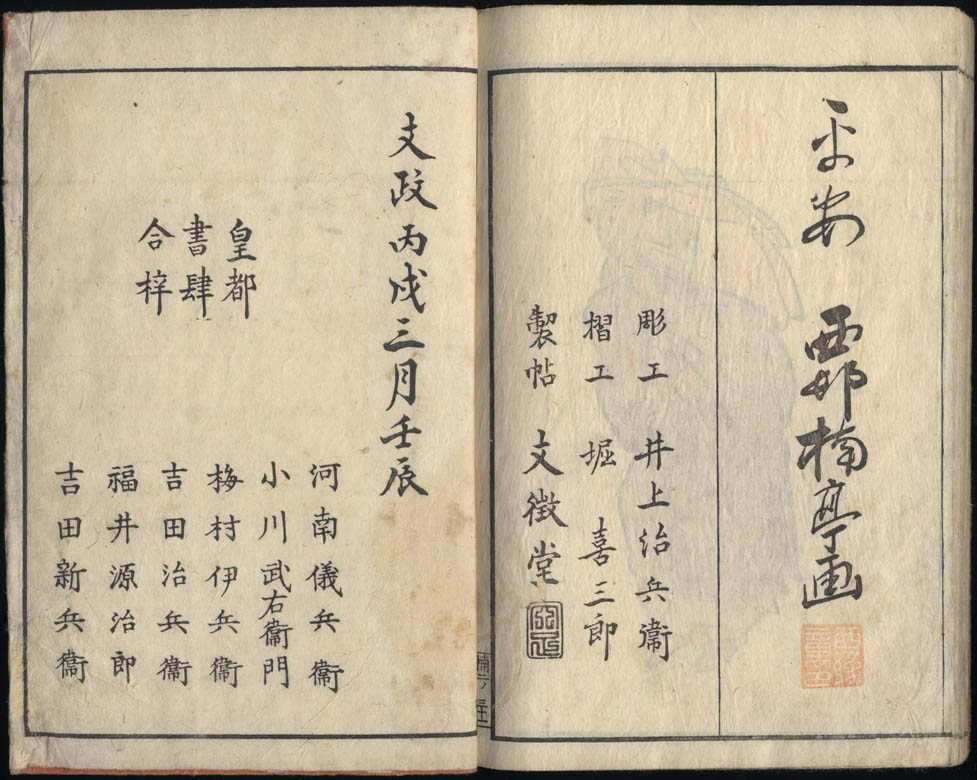 平安 西邨楠亭画
彫工 井上治兵衞
摺工 堀喜三郎
製帖 文徴堂
文政丙戌三月壬辰
皇都
書肆
合梓
河南儀兵衞
小川武右衞門
梅村伊兵衞
吉田治兵衞
福井源治郎
吉田新兵衞